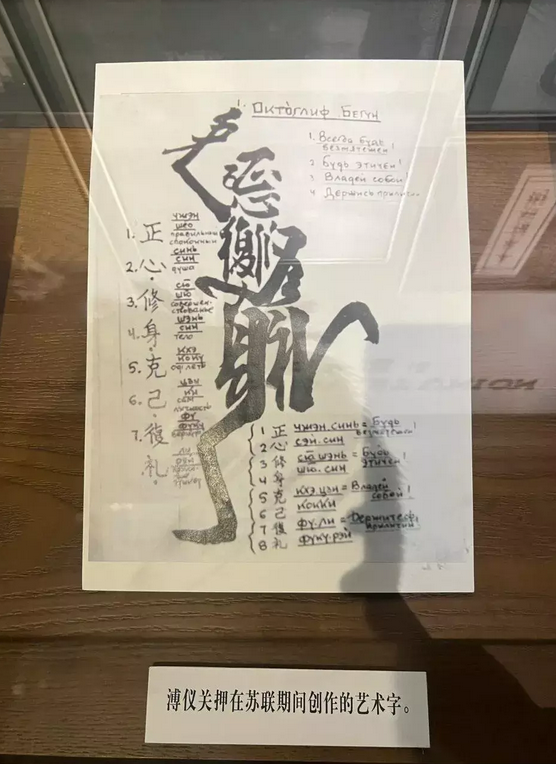 1. Октоглиф "Бегун"
1. Всегда будь
безмятежен!
2. Будь этичен!
3. Владей собой!
4. Держись приличий
1. 正 чжэн
сео
правильный
спокойный
2. 心 синь
син
душа
3. 修 сю
шю
совершен-
ствование
4. 身 шэнь
син
тело
5. 克 кхэ
коку
одолеть
6. 己 цзи
ки
сам
личность
7. 復 фу
фуку
礼 ли
рэй
1 正 чжэн.синь = Будь
безмятежен!
2 心 сэй.син
3 修 сю.шэнь = Будь
этичен!
4 身 шю.син
5 克 кхэ.цзи = Владей
собой!
6 己 кокки
7 復 фу.ли = Держитесь
приличий
8 礼 фуку.рэй
溥仪关押在苏联期间创作的艺术字。